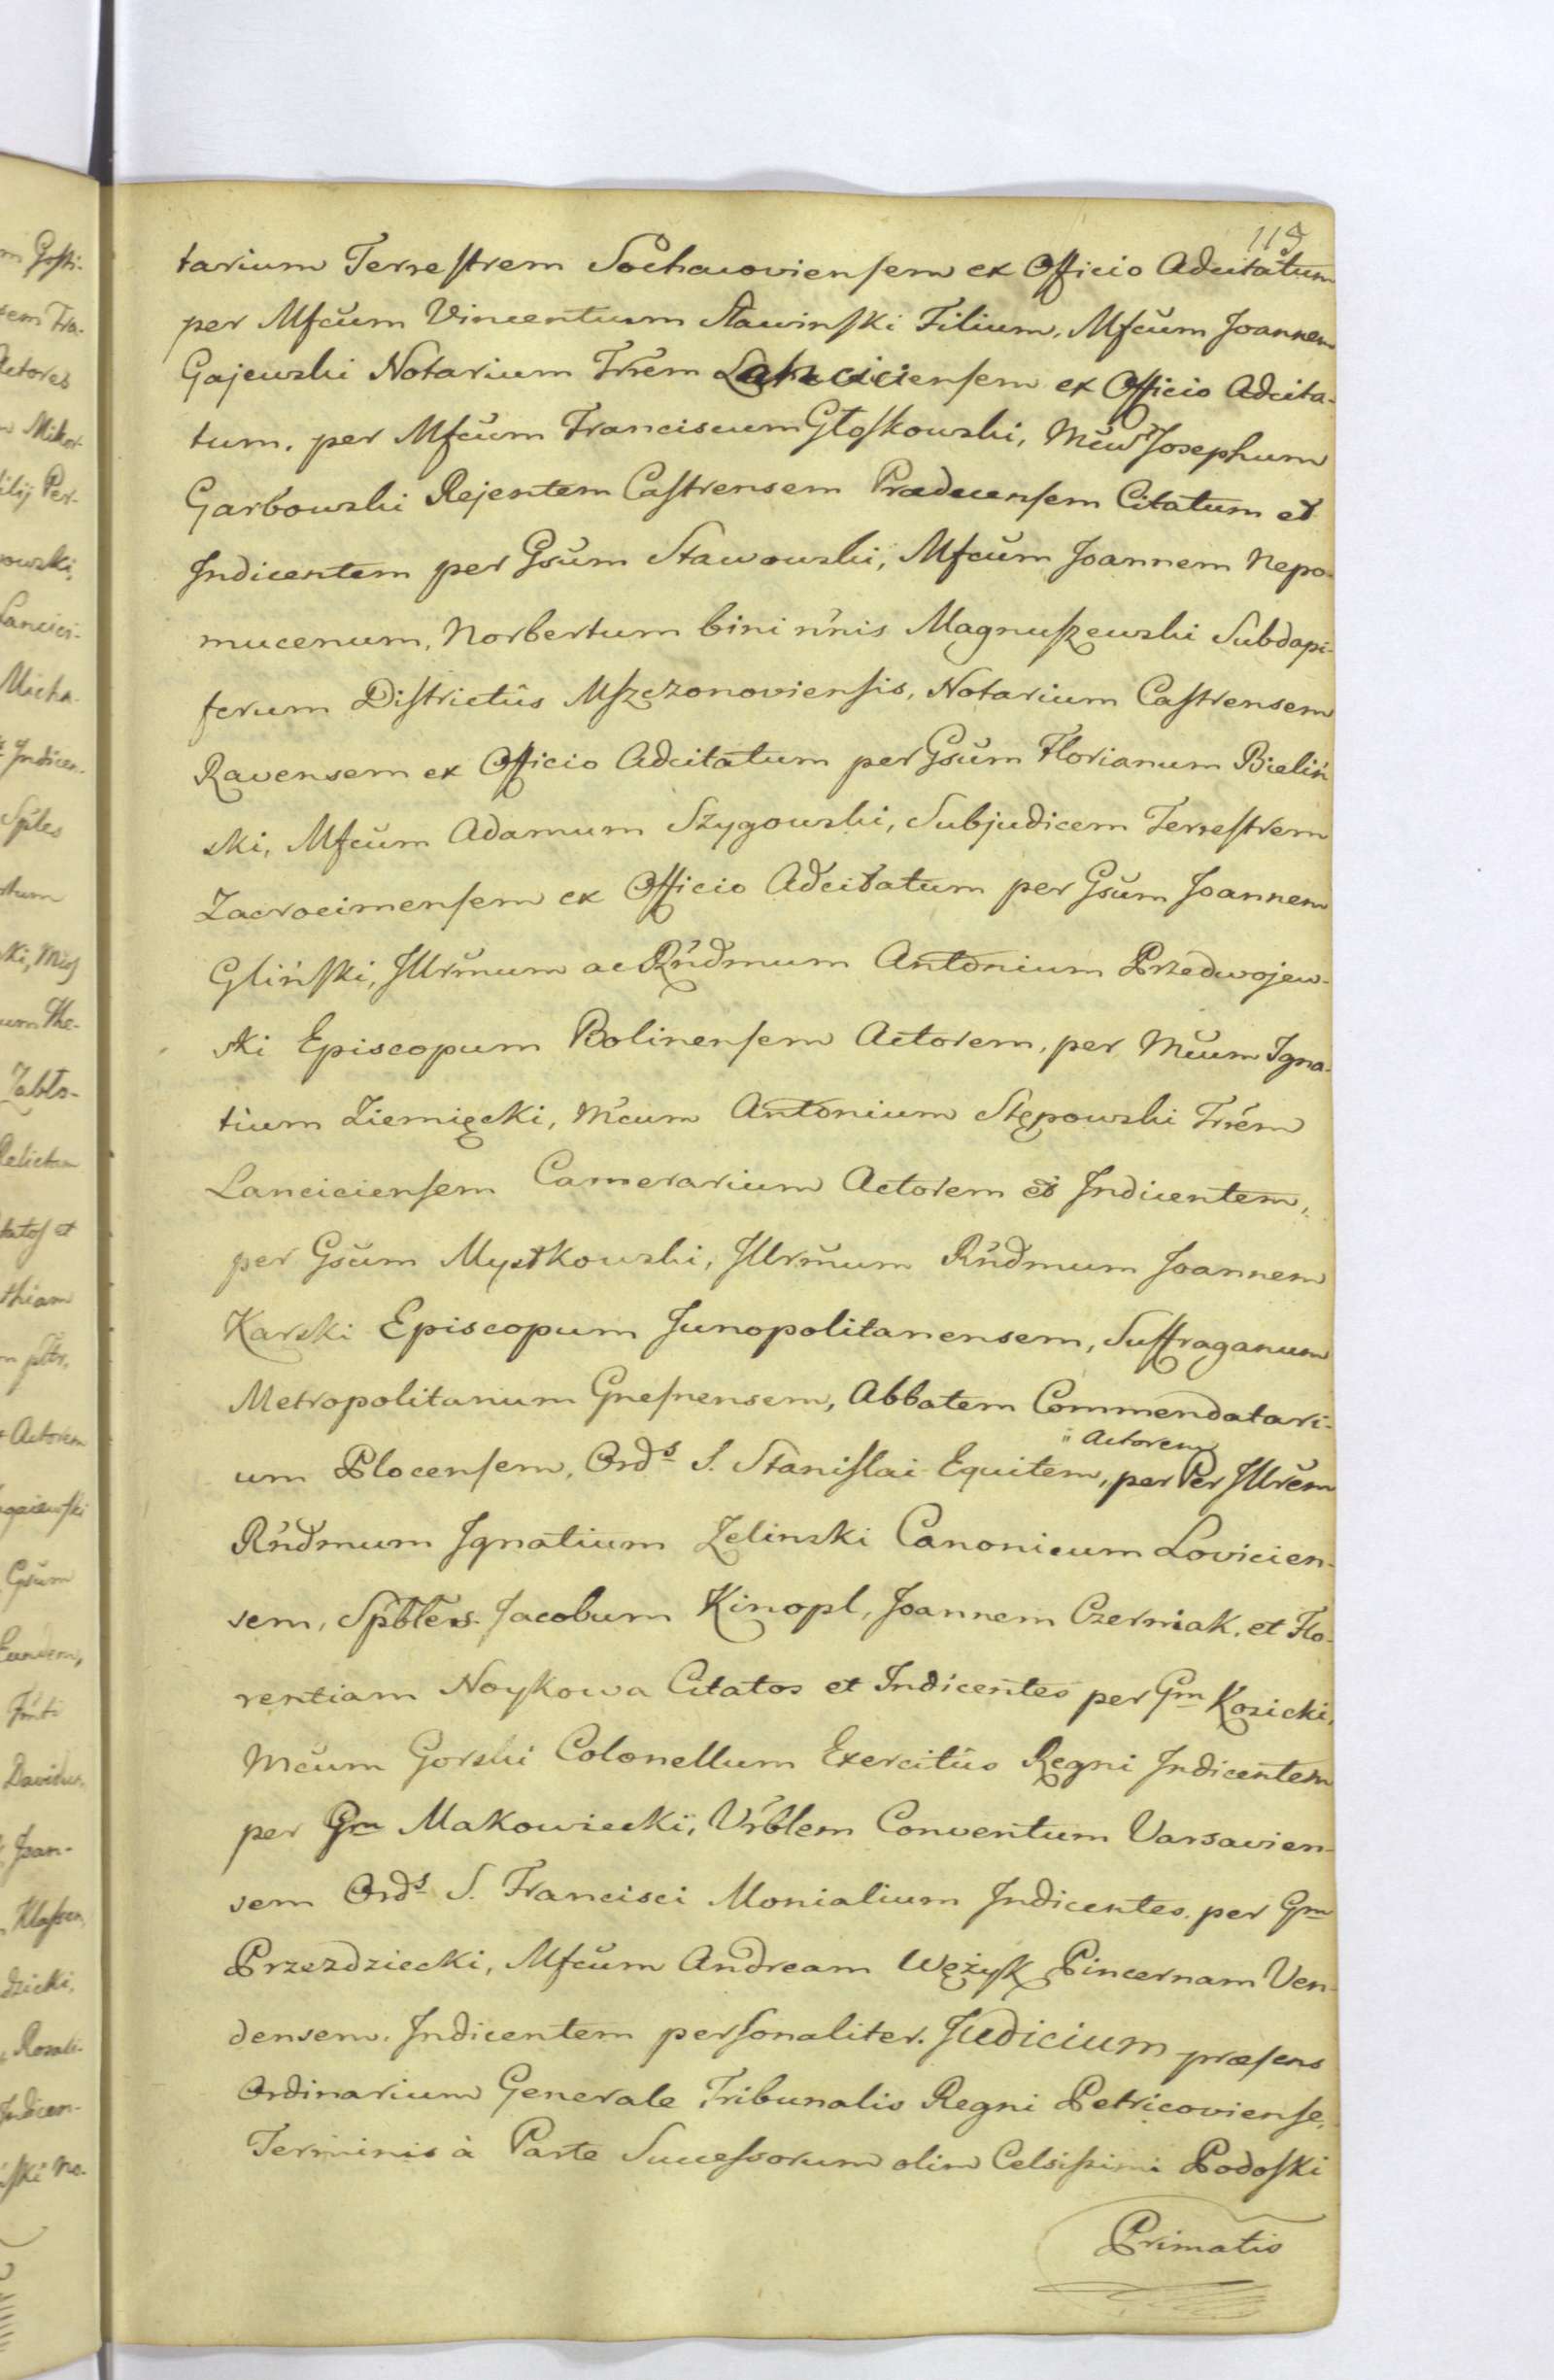 115
tarium Terrestrem Sochacoviensem ex Officio Adcitatum
per Mfcum Vincentium Sławinski Filium, Mfcum Joannem
Gajewski Notarium Trrem Lanciciensem ex Officio Adcita-
tum, per Mfcum Franciscum Głoskowski, Mcum Josephum
Garbowski Rejentem Castrensem Praedecensem Citatum et
Indicentem per Gsum Stawowski, Mfcum Joannem Nepo-
mucenum, Norbertum bini nnis Magnuszewski Subdapi-
ferum Districtûs Mszczonoviensis, Notarium Castrensem
Ravensem ex Officio Adcitatum per Gsum Florianum Bieliń
ski, Mfcum Adamum Szygowski, Subjudicem Terrestrem
Zacrocimensem ex Officio Adcitatum per Gsum Joannem
Gliński, Illrmum ac Rndmum Antonium Przedwojew-
ski Episcopum Bolinensem Actorem, per Mcum Igna-
tium Ziemięcki, Mcum Antonium Stępowski Trrem
Lanciciensem Camerarium Actorem et Indicentem,
per Gsum Mystkowski, Illrmum Rndmum Joannem
Karski Episcopum Junopolitanensem, Suffraganum
Metropolitanum Gnesnensem, Abbatem Commendatari-
Actorem
um Plocensem, Ords S. Stanislai Equitem, per Per Illrem
Rndmum Ignatium Zelinski Canonicum Lovicien-
sem, Spbles Jacobum Kinopl, Joannem Czerniak, et Flo-
rentiam Noykowa Citatos et Indicentes per Gm Kozicki,
Mcum Gorski Colonellum Exercitûs Regni Indicentem
per Gm Makowiecki, Vrblem Conventum Varsavien-
sem Ords S. Francisci Monialium Indicentes per Gm
Przezdziecki, Mfcum Andream Wężyk Pincernam Ven-
densem Indicentem personaliter. Judicium praesens
Ordinarium Generale Tribunalis Regni Petricoviense,
Terminis à Parte Successorum olim Celsissimi Podoski
Primatis